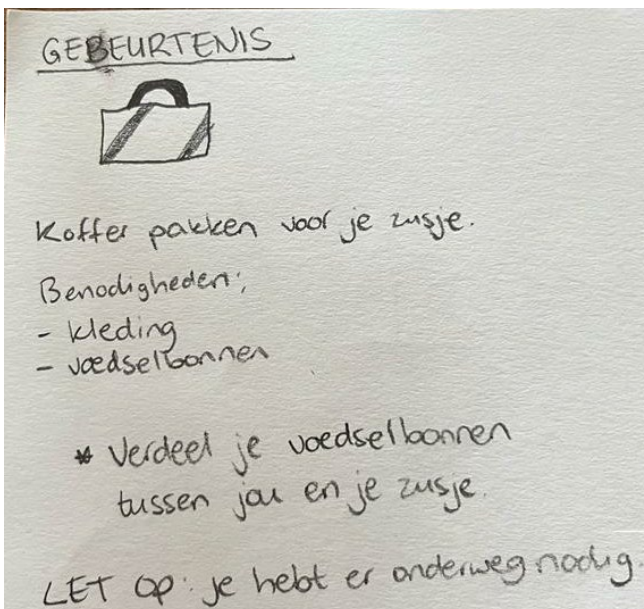 GEBEURTENIS
Koffer pakken voor je zusje.
Benodigheden:
- kleding
- voedselbonnen
* Verdeel je voedselbonnen
tussen jou en je zusje.
LET OP: je hebt er onderweg nodig.